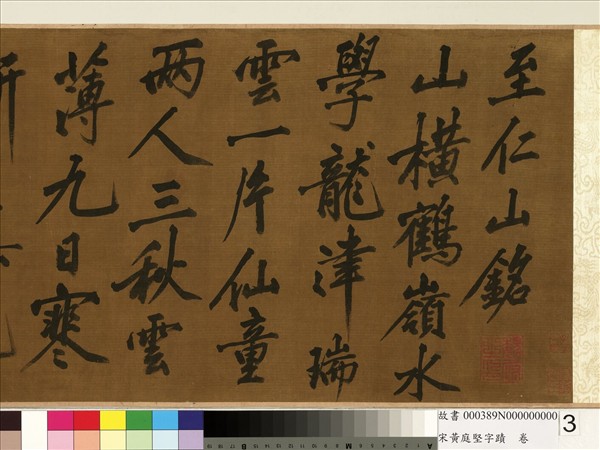 至仁山銘
山橫鶴嶺水
學龍津瑞
雲一片仙童
兩人三秋雲
薄九日寒
故書 000389N000000000
3
宋黃庭堅字蹟 卷